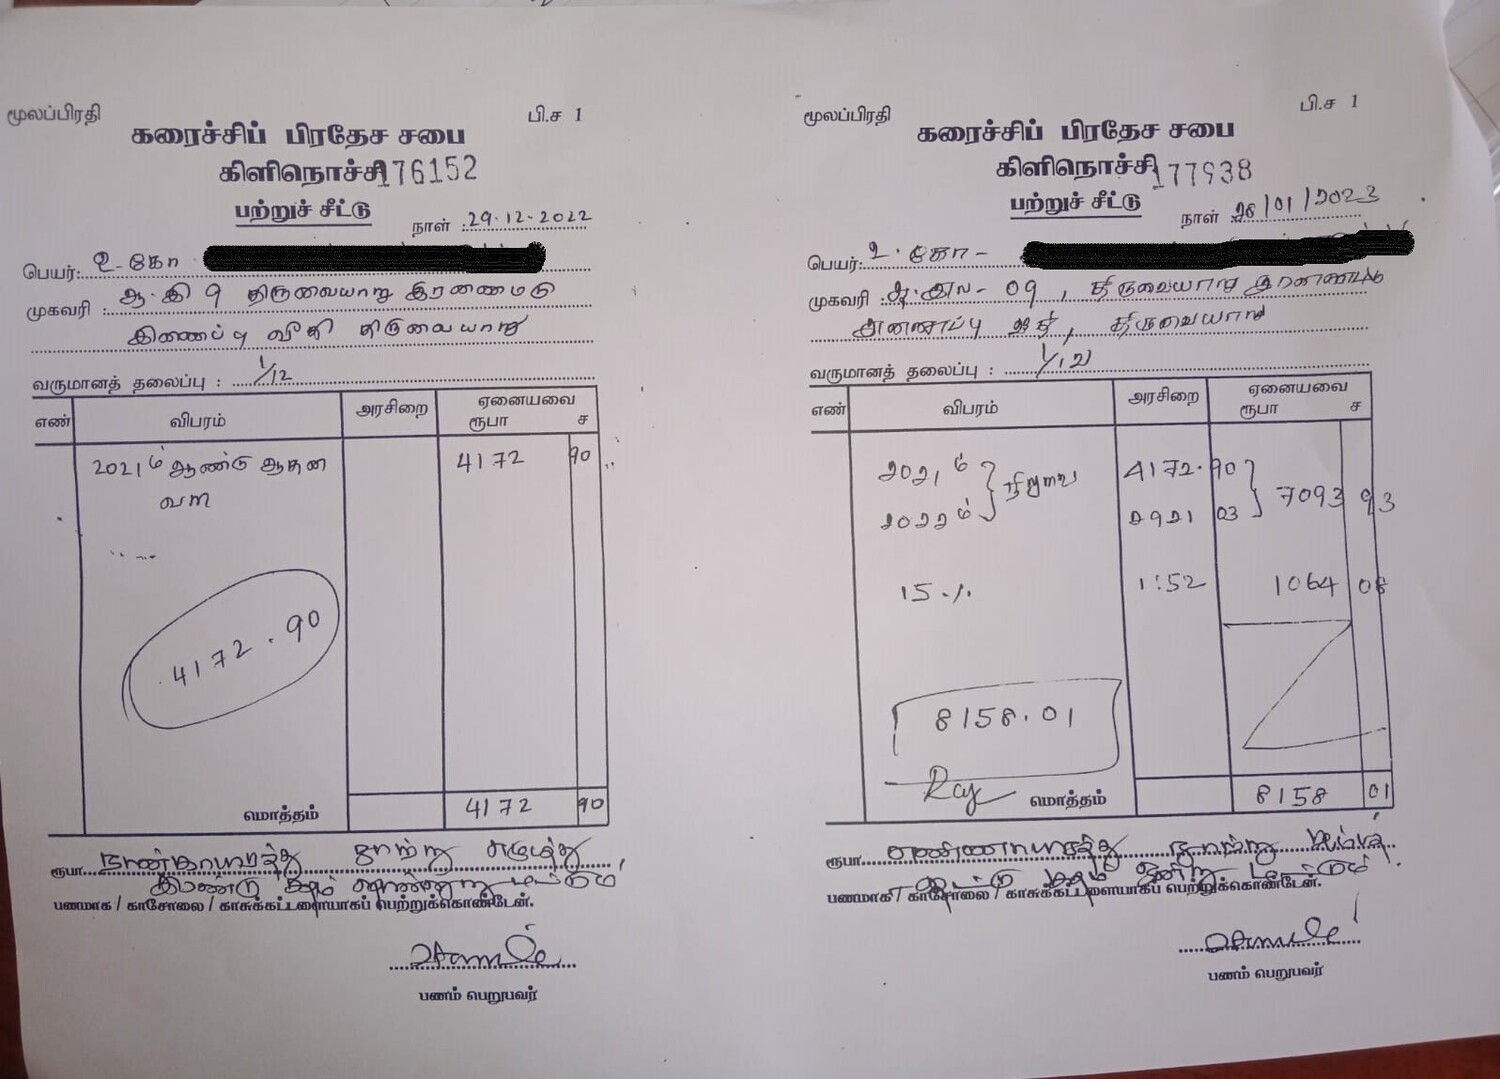 மூலப்பிரதி
பி.ச 1
கரைச்சிப் பிரதேச சபை
கிளிநொச்சி 176152
பற்றுச் சீட்டு
நாள் 29.12.2022
பெயர்: உ-கோ
முகவரி : ஆ.இ 9 திருவையாறு இரணைமடு
இணைப்பு வீதி திருவையாறு
வருமானத் தலைப்பு : 1/12
எண் விபரம் அரசிறை ஏனையவை
ரூபா ச
2021ம் ஆண்டு ஆதன 4172 90
வரி
4172.90
மொத்தம் 4172 90
ரூபா நான்காயிரத்து நூற்று எழுபத்து
இரண்டு
பணமாக / காசோலை / காசுக்கட்டளையாகப் பெற்றுக்கொண்டேன்.
பணம் பெறுபவர்
மூலப்பிரதி
பி.ச 1
கரைச்சிப் பிரதேச சபை
கிளிநொச்சி 177938
பற்றுச் சீட்டு
நாள் 28/01/2023
பெயர்: உ.கோ-
முகவரி : 09, திருவையாறு
திருவையாறு
வருமானத் தலைப்பு : 1/12
எண் விபரம் அரசிறை ஏனையவை
ரூபா ச
2021ம் நிலுவை 4172.90 7093 93
2022ம் 2921 03
15% 1064 08
8158.01
மொத்தம் 8158 01
ரூபா எண்ணாயிரத்து நூற்று ஐம்பத்
பணமாக / காசோலை / காசுக்கட்டளையாகப் பெற்றுக்கொண்டேன்.
பணம் பெறுபவர்